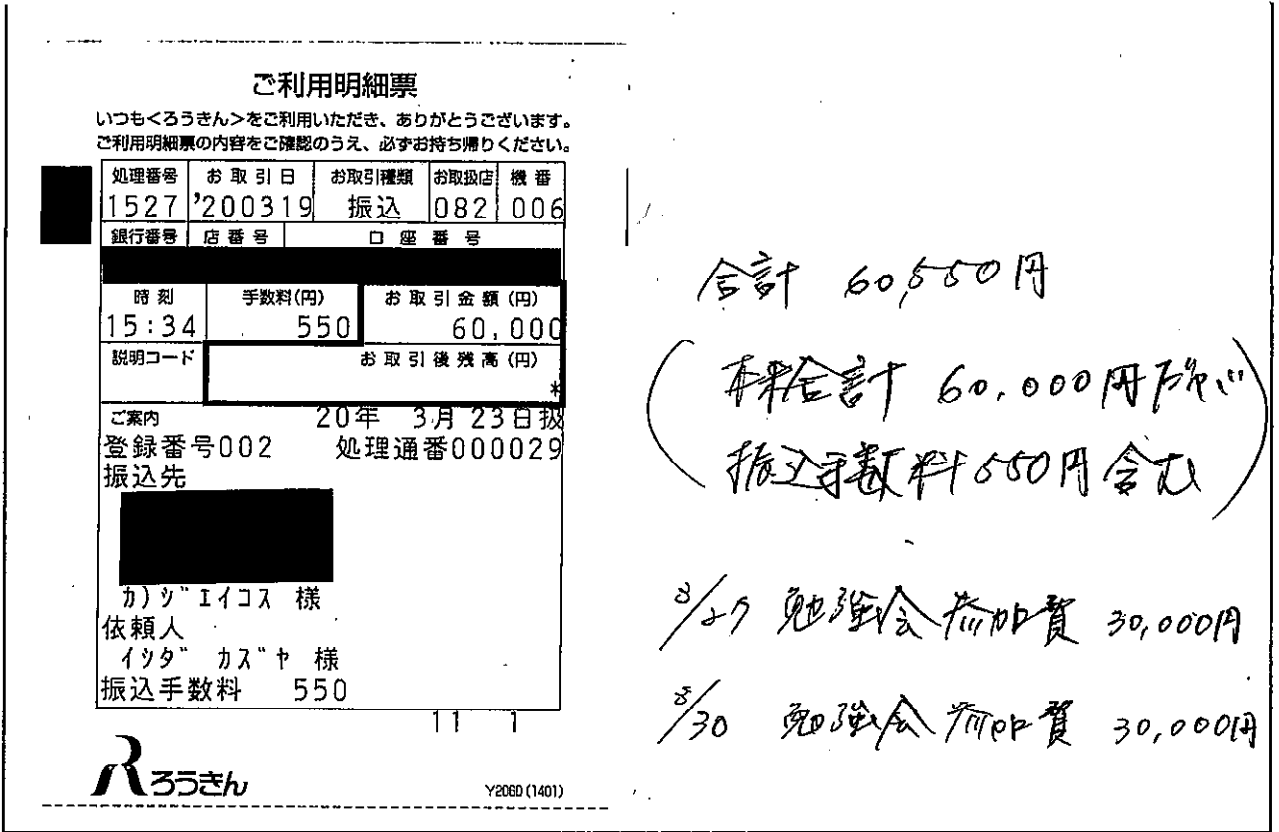 ご利用明細票
いつも<ろうきん>をご利用いただき、ありがとうございます。
ご利用明細票の内容をご確認のうえ、必ずお持ち帰りください。
処理番号 お取引日 お取引種類 お取扱店 機番
1527 '200319 振込 082 006
銀行番号 店番号 口座番号
時刻 手数料(円) お取引金額(円)
15:34 550 60,000
説明コード お取引後残高(円)
*
ご案内 20年 3月23日扱
登録番号002 処理通番000029
振込先
カ)ジエイコス 様
依頼人
イシダ カズヤ 様
振込手数料 550
11 1
ろうきん
Y2060(1401)
合計 60,550円
合計 60,000円
振込手数料550円含む
3/27 勉強会参加費 30,000円
3/30 勉強会参加費 30,000円